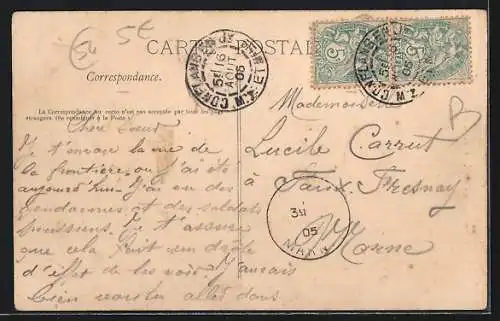 5t
CARTE POSTALE
Correspondance.
La Correspondance au recto n'est pas acceptée par tous les pays
étrangers. (Se renseigner à la Poste)
Chère Soeur
Je t'envoie la vue de
la frontière où j'ai été
aujourd'hui. J'ai vu des
gendarmes et des soldats
prussiens. Je t'assure
que cela fait un drôle
d'effet de les voir. J'aurais
bien voulu aller dans
Mademoiselle
Lucile Carrut
à Faux-Fresnay
Marne
CONFLANS-EN-JY
16
AOUT
05
MTHE ET M.
CONFLANS-EN-JY
16
AOUT
05
MTHE ET M.
5
5
05
MARNE